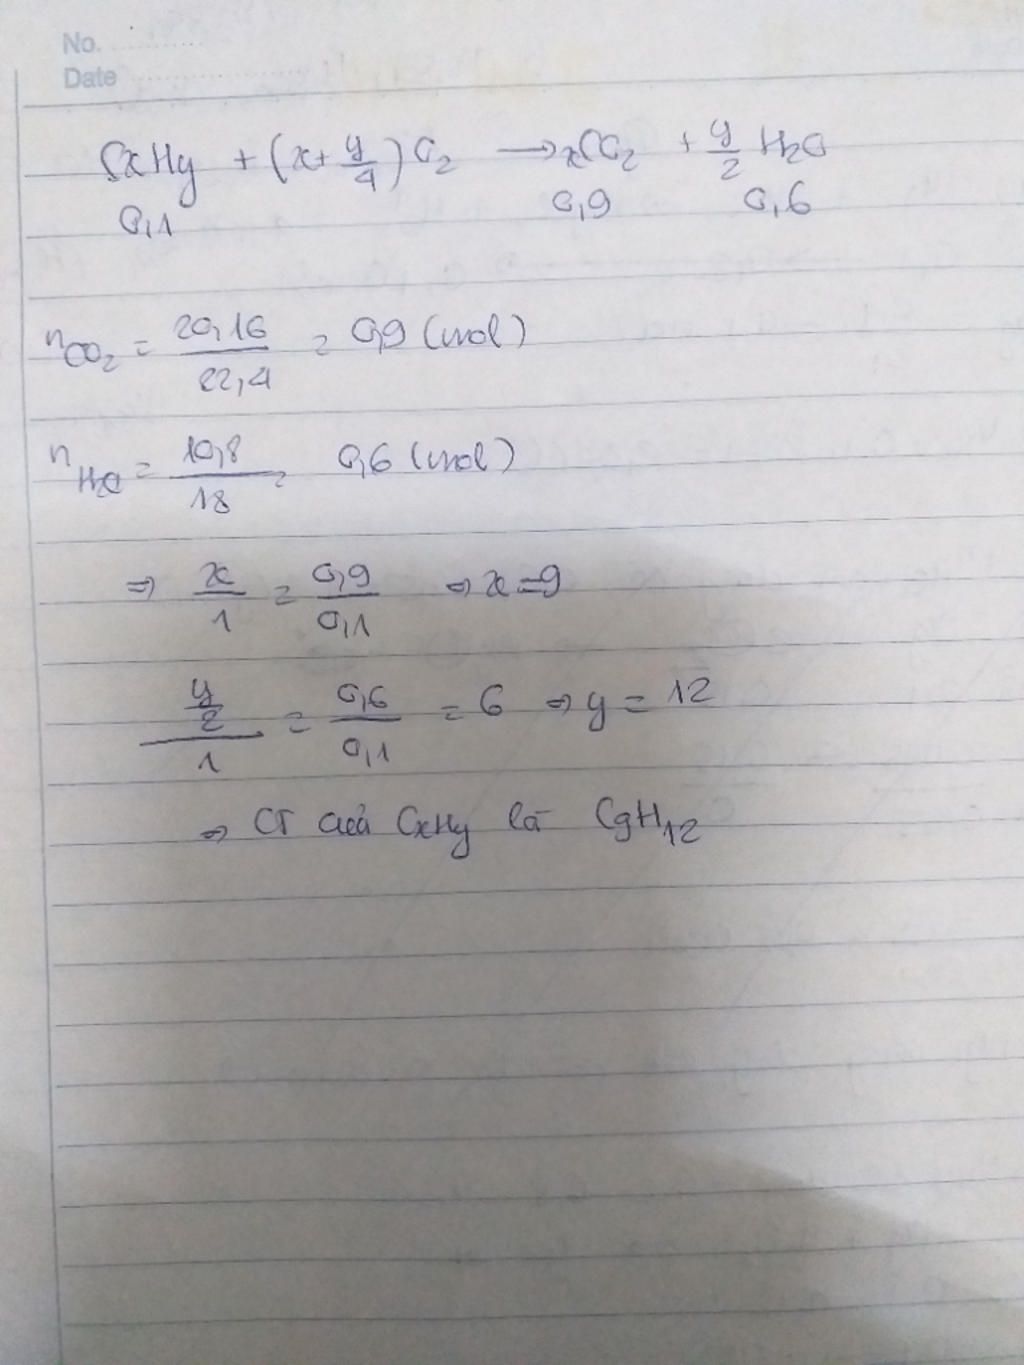 No.
Date
CxHy + (x + y/4) O2 → xCO2 + y/2 H2O
0,1 0,9 0,6
nCO2 = 20,16/22,4 = 0,9 (mol)
nH2O = 10,8/18 = 0,6 (mol)
⇒ x/1 = 0,9/0,1 ⇒ x = 9
y/2/1 = 0,6/0,1 = 6 ⇒ y = 12
⇒ CT của CxHy là C9H12